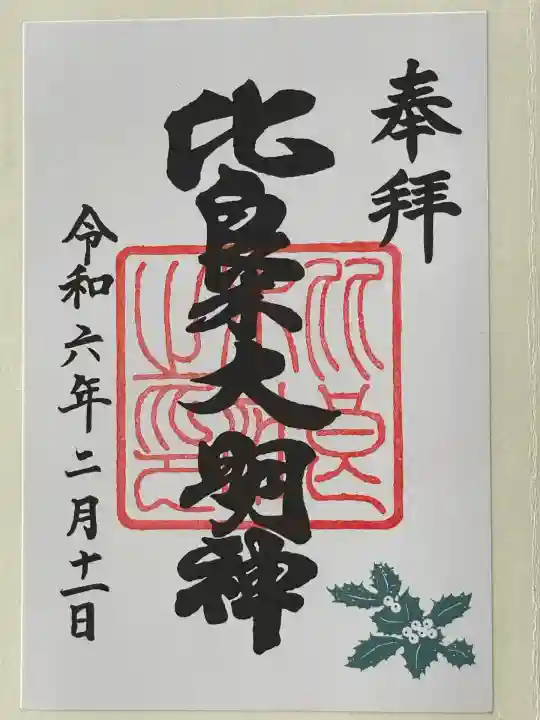 奉拝
比良木大明神
令和六年二月十一日